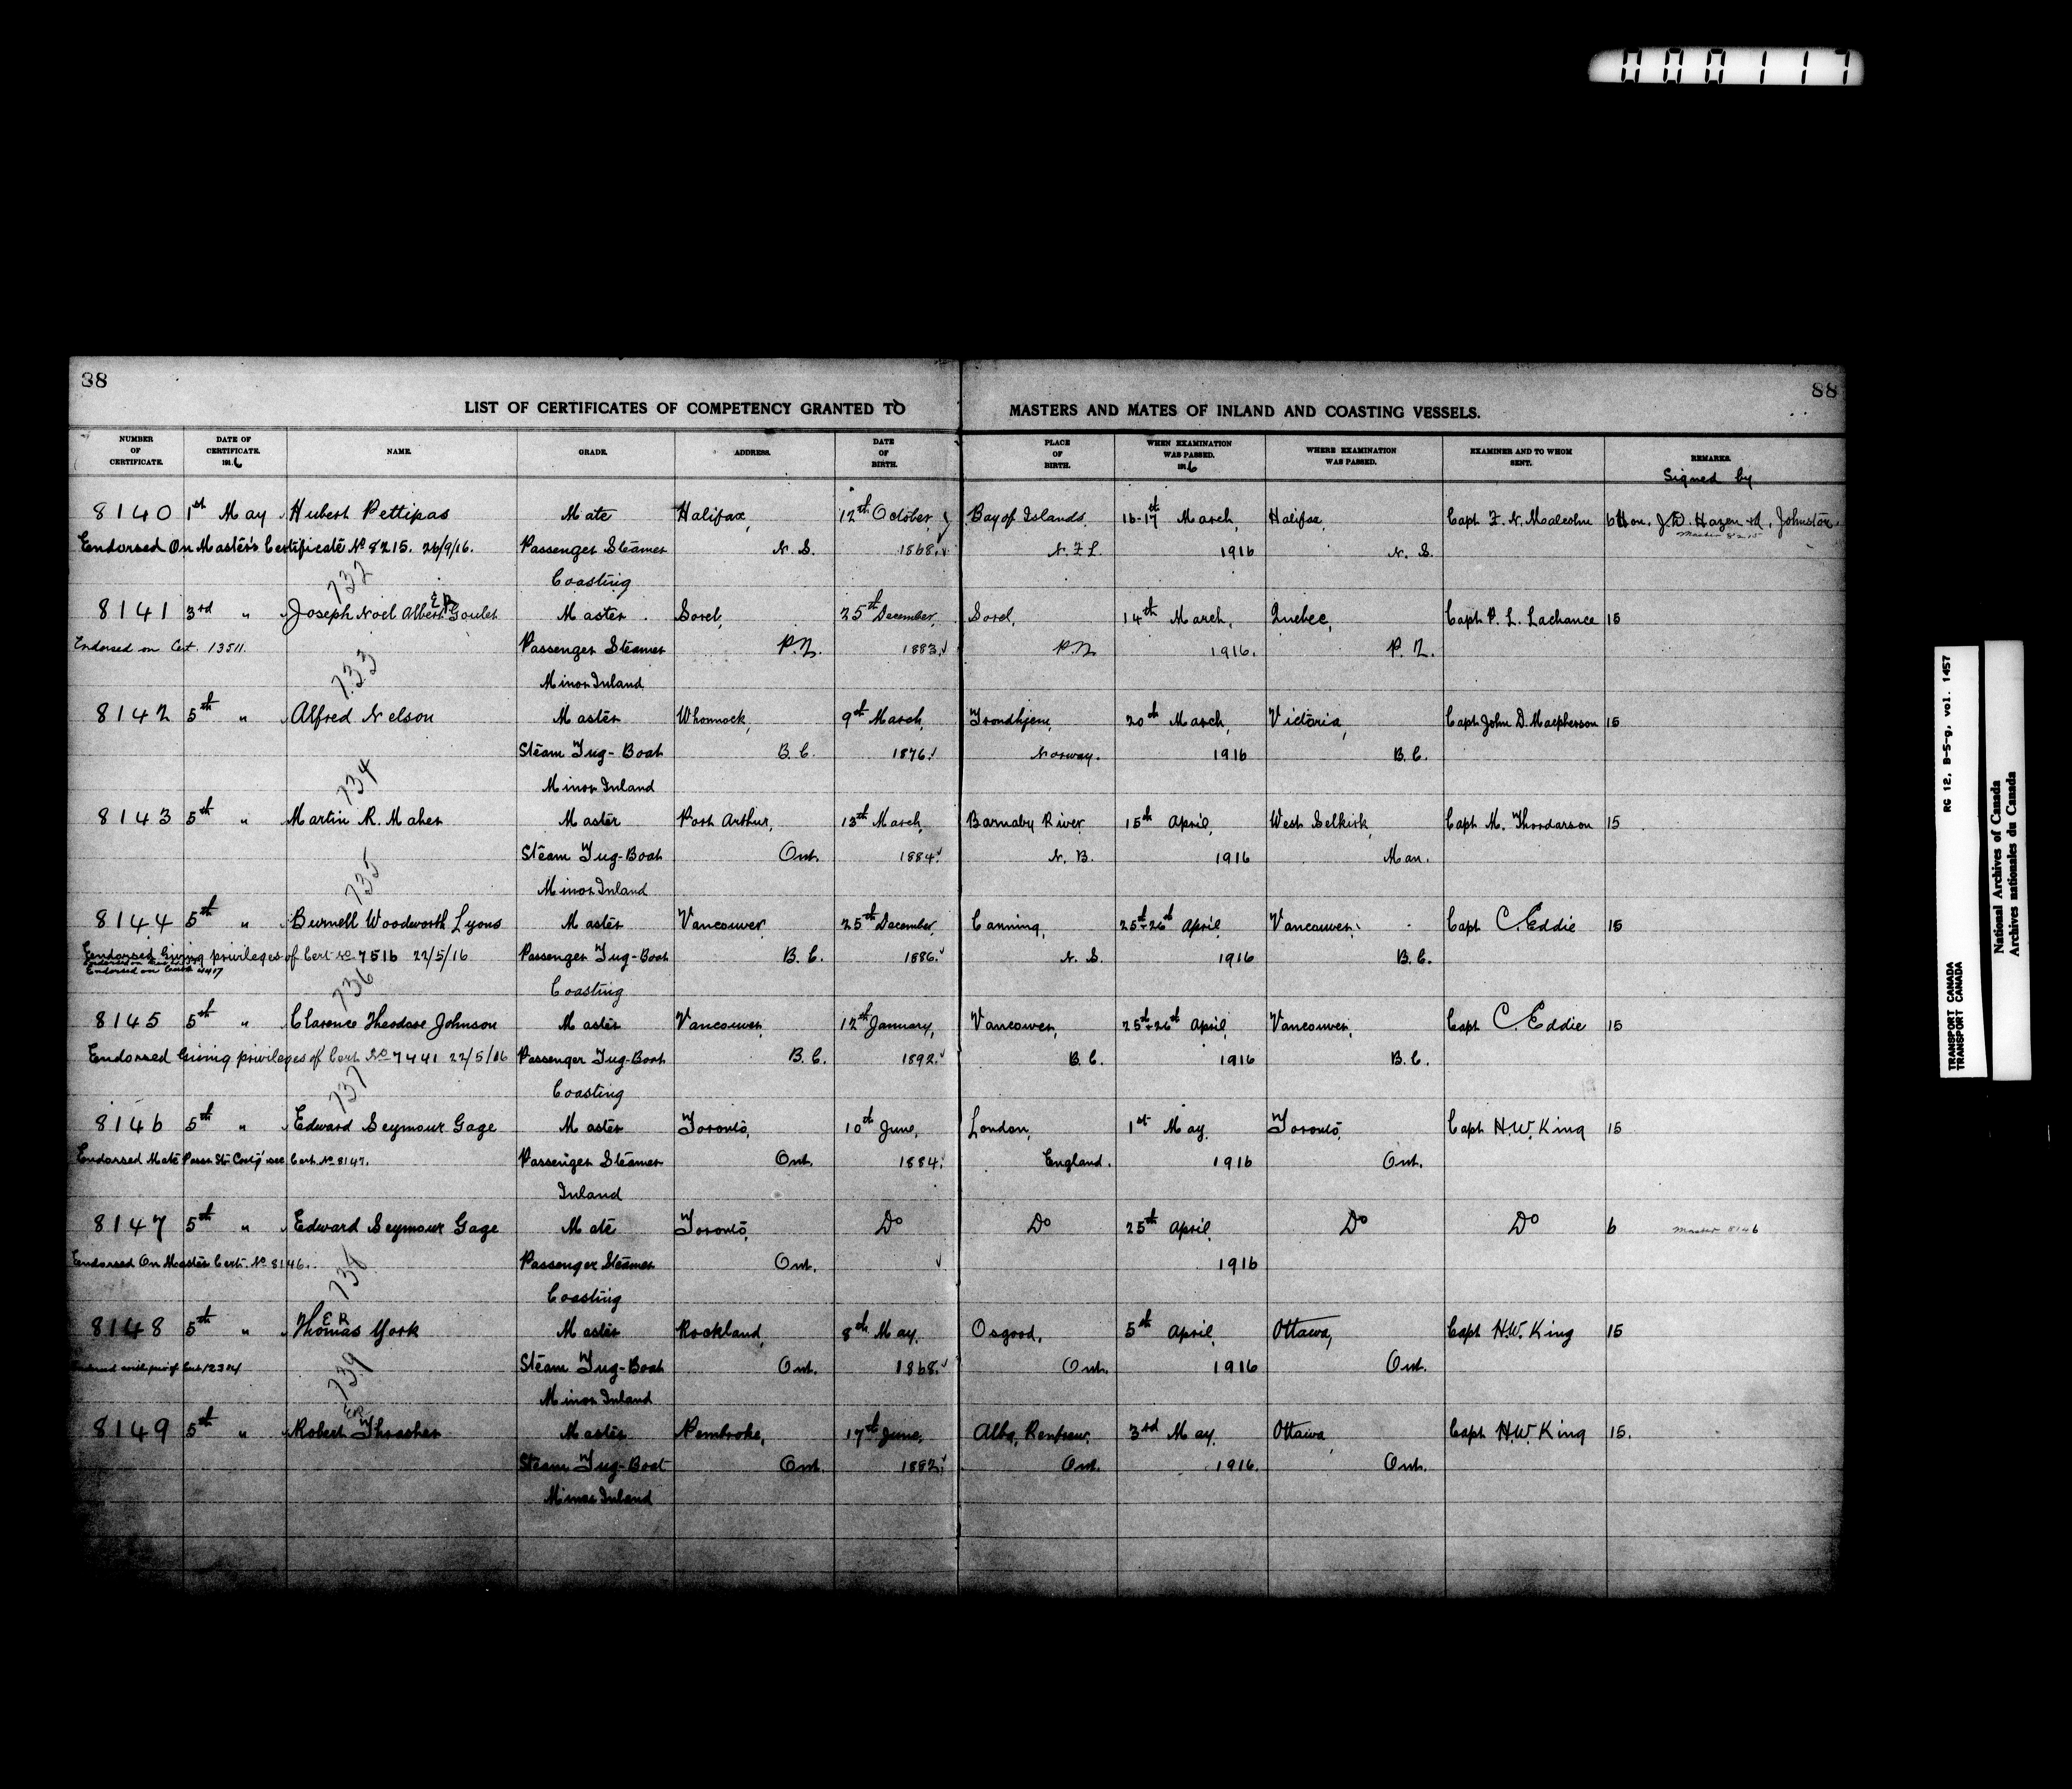 000117
88 88
LIST OF CERTIFICATES OF COMPETENCY GRANTED TO MASTERS AND MATES OF INLAND AND COASTING VESSELS.
NUMBER OF CERTIFICATE. DATE OF CERTIFICATE. 1916 NAME. GRADE. ADDRESS. DATE OF BIRTH. PLACE OF BIRTH. WHEN EXAMINATION WAS PASSED. 1916 WHERE EXAMINATION WAS PASSED. EXAMINER AND TO WHOM SENT. REMARKS.
Signed by
8140 1st May Hubert Pettipas Mate Halifax, 12th October, Bay of Islands, 16-17th March, Halifax, Capt F. N. Malcolm 6 Hon. J. D. Hazen + A. Johnston.
Master 8215
Endorsed On Master's Certificate No 8215. 26/9/16. Passenger Steamer N. S. 1868. N. F. L. 1916 N. S.
732 Coasting
E R
8141 3rd " Joseph Noel Albert Goulet Master Sorel, 25th December, Sorel, 14th March, Quebec, Capt P. L. Lachance 15
Endorsed on Cert. 13511. Passenger Steamer P.Q. 1883. P.Q. 1916. P. Q.
733 Minor Inland
8142 5th " Alfred Nelson Master Whonnock, 9th March, Trondhjem, 20th March, Victoria, Capt John D. Macpherson 15
Steam Tug-Boat B. C. 1876. Norway. 1916 B. C.
734 Minor Inland
8143 5th " Martin R. Maher Master Port Arthur, 13th March, Barnaby River 15th April, West Selkirk, Capt M. Thordarson 15
Steam Tug-Boat Ont. 1884. N. B. 1916 Man.
735 Minor Inland
8144 5th " Burnell Woodworth Lyons Master Vancouver, 25th December, Canning, 25th+26th April, Vancouver, Capt C. Eddie 15
Endorsed Giving privileges of Cert No 7516 22/5/16 Passenger Tug-Boat B. C. 1886. N. S. 1916 B. C.
736 Coasting
8145 5th " Clarence Theodore Johnson Master Vancouver, 12th January, Vancouver, 25th+26th April, Vancouver, Capt C. Eddie 15
Endorsed Giving privileges of Cert No 7441 22/5/16 Passenger Tug-Boat B. C. 1892. B. C. 1916 B. C.
737 Coasting
8146 5th " Edward Seymour Gage Master Toronto, 10th June, London, 1st May, Toronto, Capt H. W. King 15
Endorsed Mate Passr Str Coast'g see Cert. No 8147. Passenger Steamer Ont. 1884. England. 1916 Ont.
Inland
8147 5th " Edward Seymour Gage Mate Toronto, Do Do 25th April, Do Do 6 Master 8146
Endorsed On Master Cert. No 8146. Passenger Steamer Ont. 1916
738 Coasting
E R
8148 5th " Thomas York Master Rockland, 8th May, Osgood, 5th April, Ottawa, Capt H. W. King 15
Steam Tug-Boat Ont. 1868. Ont. 1916 Ont.
739 Minor Inland
ER
8149 5th " Robert Thrasher Master Pembroke, 17th June, Alba, Renfrew, 3rd May, Ottawa, Capt H. W. King 15.
Steam Tug-Boat Ont. 1882. Ont. 1916. Ont.
Minor Inland
RG 12, B-5-g, vol. 1457
TRANSPORT CANADA
TRANSPORT CANADA
National Archives of Canada
Archives nationales du Canada